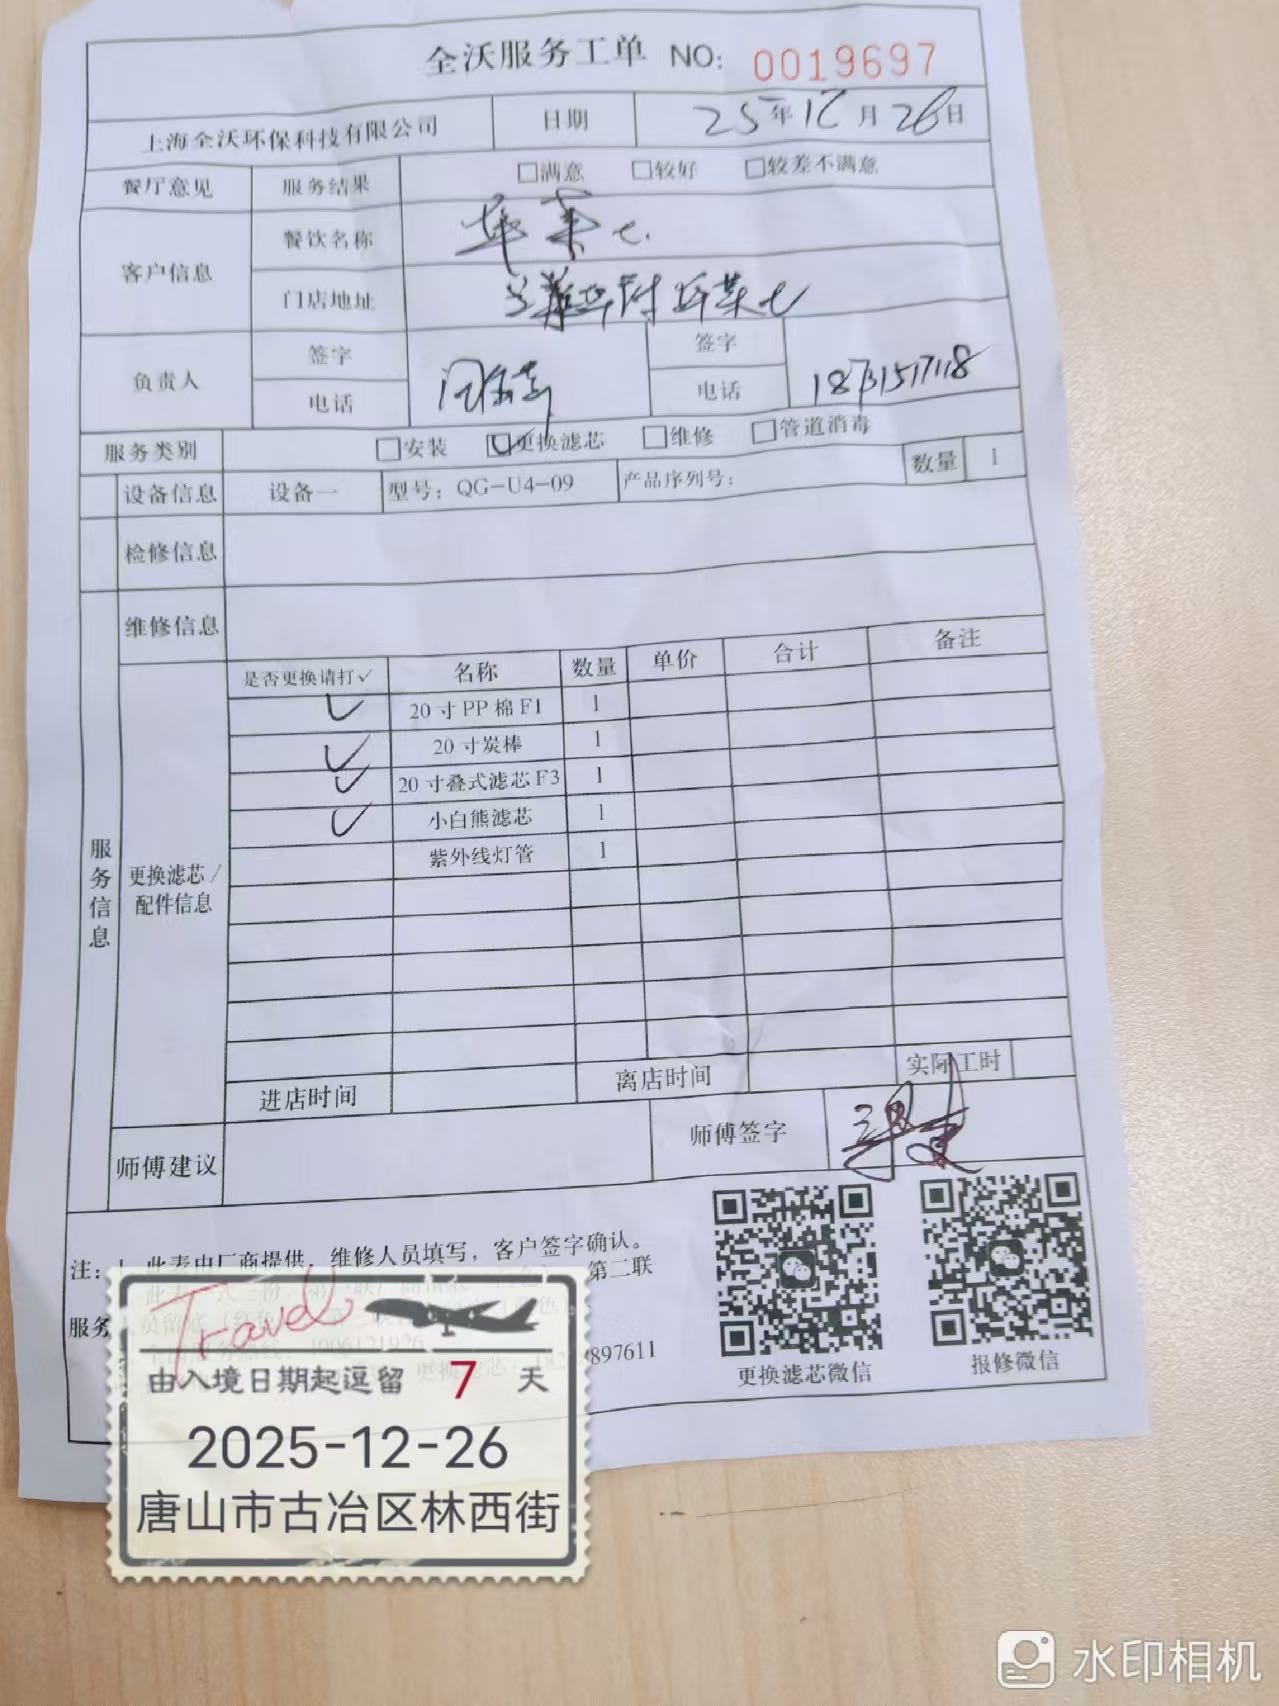 全沃服务工单 NO: 0019697
上海全沃环保科技有限公司 日期 25年12月26日
餐厅意见 服务结果 □满意 □较好 □较差不满意
客户信息 餐饮名称 华莱士
门店地址 华莱士
负责人 签字 签字
电话 电话 18731517118
服务类别 □安装 □更换滤芯 □维修 □管道消毒
设备信息 设备一 型号: QG-U4-09 产品序列号: 数量 1
检修信息
维修信息
是否更换请打✓ 名称 数量 单价 合计 备注
✓ 20寸PP棉F1 1
✓ 20寸炭棒 1
✓ 20寸叠式滤芯F3 1
✓ 小白熊滤芯 1
紫外线灯管 1
服务信息
更换滤芯/
配件信息
进店时间 离店时间 实际工时
师傅建议 师傅签字
注: 1、此表由厂商提供，维修人员填写，客户签字确认。
第二联
服务
897611
更换滤芯微信 报修微信
Travel
由入境日期起逗留 7 天
2025-12-26
唐山市古冶区林西街
水印相机